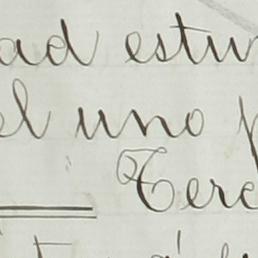 ad estu
el uno p
Terc